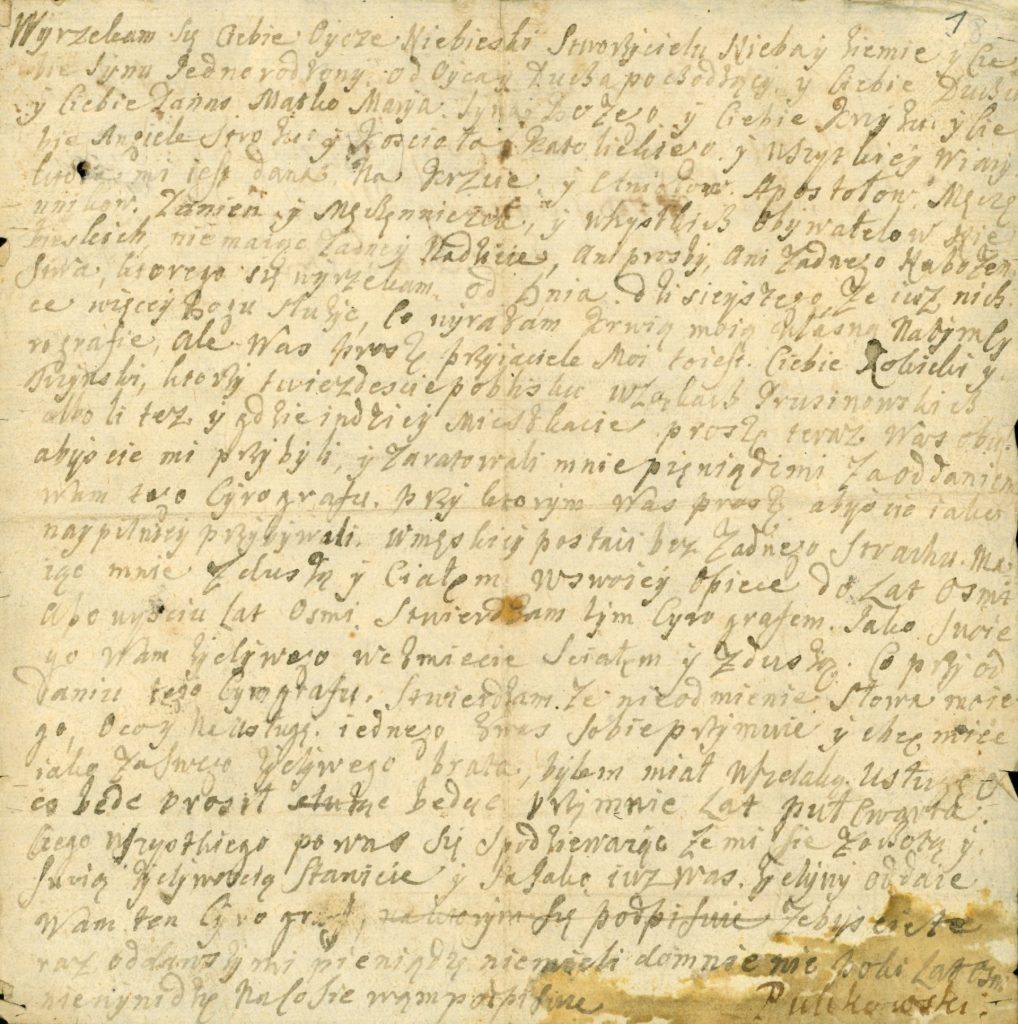 1
Wyrzekam Się Ciebie Oycze Niebieski Stworzycielu Nieba y Ziemie y Cie
bie Synu Jednorodzony od Oyca y Ducha pochodzący y Ciebie Duchu
y Ciebie Panno Matko Marya Syna Bożego y Ciebie Krzyżu y Cie
bie Angiele Strożu y Kościoła Katolickiego y wszytkiey Wiary
ktora mi iest dana Na Krzcie y Apostołow, Męcze
nnikow. Panien y Męczenniczek, y wszystkich Obywatelow Nie
bieskich, nie maiąc Żadney Nadzieie, Ani prozby, Ani Żadnego Nabożen
stwa, ktorego się wyrzekam od Dnia dzisieyszego, Że iuż nich
ce więcey Bogu służyć, Co wyrażam Krwią moią własną Na tym Cy
rografie, Ale Was proszę Przyiaciele Moi toiest. Ciebie Rokicki y
ktorzy iesteście poblisku w Łąkach Prusinowskich
albo li tez y gdzie indziey Mieszkacie proszę teraz Was obu.
abyście mi przybyli, y zaratowali mnie pięniądzmi Za oddaniem
wam tego Cyrografu. Przy ktorym Was proszę abyście iako
naypilniey przybywali. w męskiey postaci bez Żadnego Strachu. Ma
iąc mnie Z duszą y Ciałem w swoiey Opiece do Lat Osmi
A po wyściu Lat Osmi. Stwierdzam tym Cyrografem. Jako Swoie
go Wam Życzliwego weźmiecie Sciałem y Z duszą. Co przy od
daniu tego Cyrografu. Stwierdzam Ze nieodmienie Słowa moie
go, Na Usługę iednego zwas Sobie przymuie y chcę mieć
iako Za Swego Życzliwego brata, bylem miał Wszelaką Usługę
co będę prosił będąc przy mnie Lat puł Cwarta.
Czego Wszystkiego po was Się spodziewaiąc Że mi Się Z ochotą y
Swoią Życzliwoscią Stawicie y Ja Jako iuż Was. Życzliwy oddaie
Wam ten Cyrograf, na ktorym Się podpisuie Żebyście te
raz oddawszy mi pieniądze niemieli do mnie nic Poki Lat Osm
niewynidzie Na co Sie wam podpisuie Pulikowski.